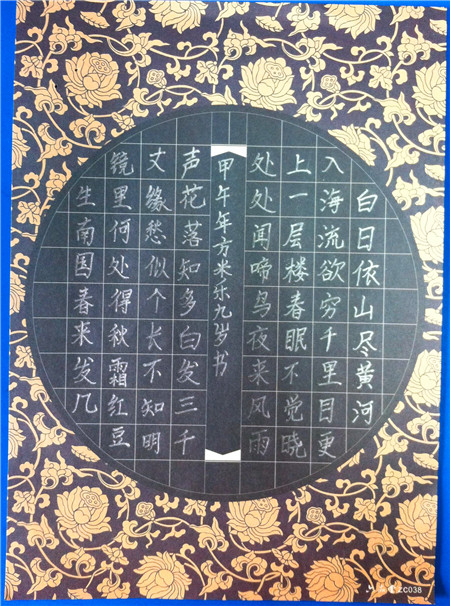 白日依山尽黄河
入海流欲穷千里目更
上一层楼春眠不觉晓
处处闻啼鸟夜来风雨
甲午年方米乐九岁书
声花落知多白发三千
丈缘愁似个长不知明
镜里何处得秋霜红豆
生南国春来发几
ZC038